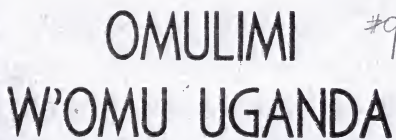 OMULIMI
W'OMU UGANDA